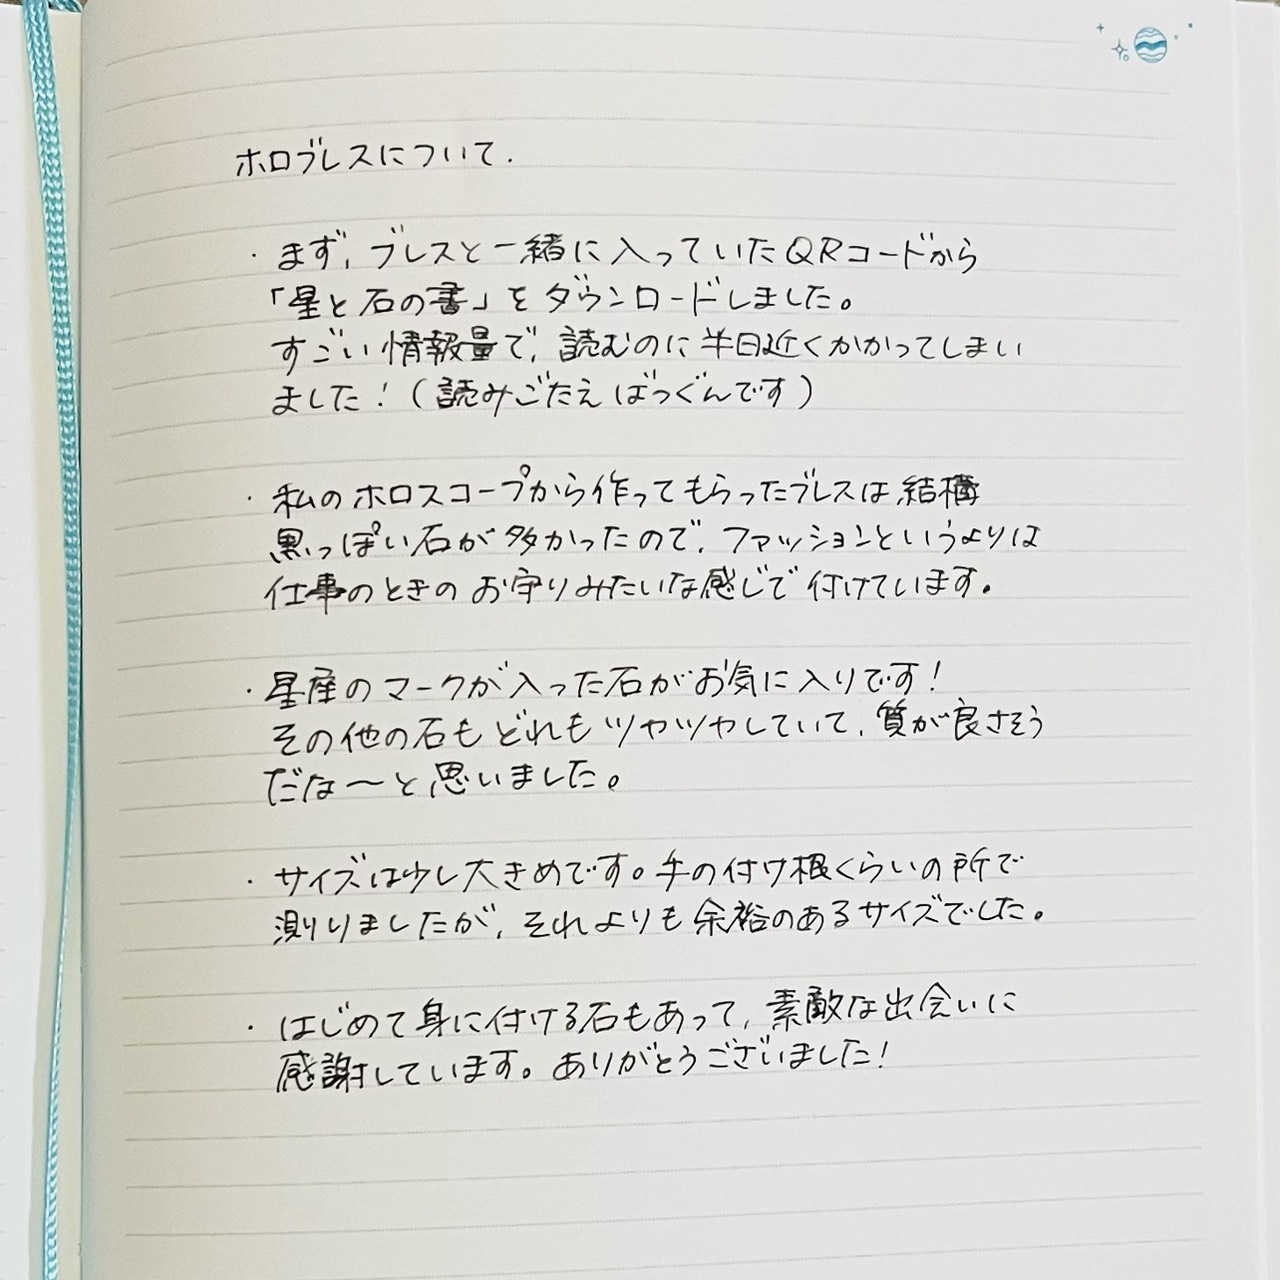 ホロブレスについて.
・まず、ブレスと一緒に入っていたQRコードから
「星と石の書」をダウンロードしました。
すごい情報量で、読むのに半日近くかかってしまい
ました！（読みごたえばつぐんです）
・私のホロスコープから作ってもらったブレスは結構
黒っぽい石が多かったので、ファッションというよりは
仕事のときのお守りみたいな感じで付けています。
・星座のマークが入った石がお気に入りです！
その他の石もどれもツヤツヤしていて、質が良さそう
だな〜と思いました。
・サイズは少し大きめです。手の付け根くらいの所で
測りましたが、それよりも余裕のあるサイズでした。
・はじめて身に付ける石もあって、素敵な出会いに
感謝しています。ありがとうございました！